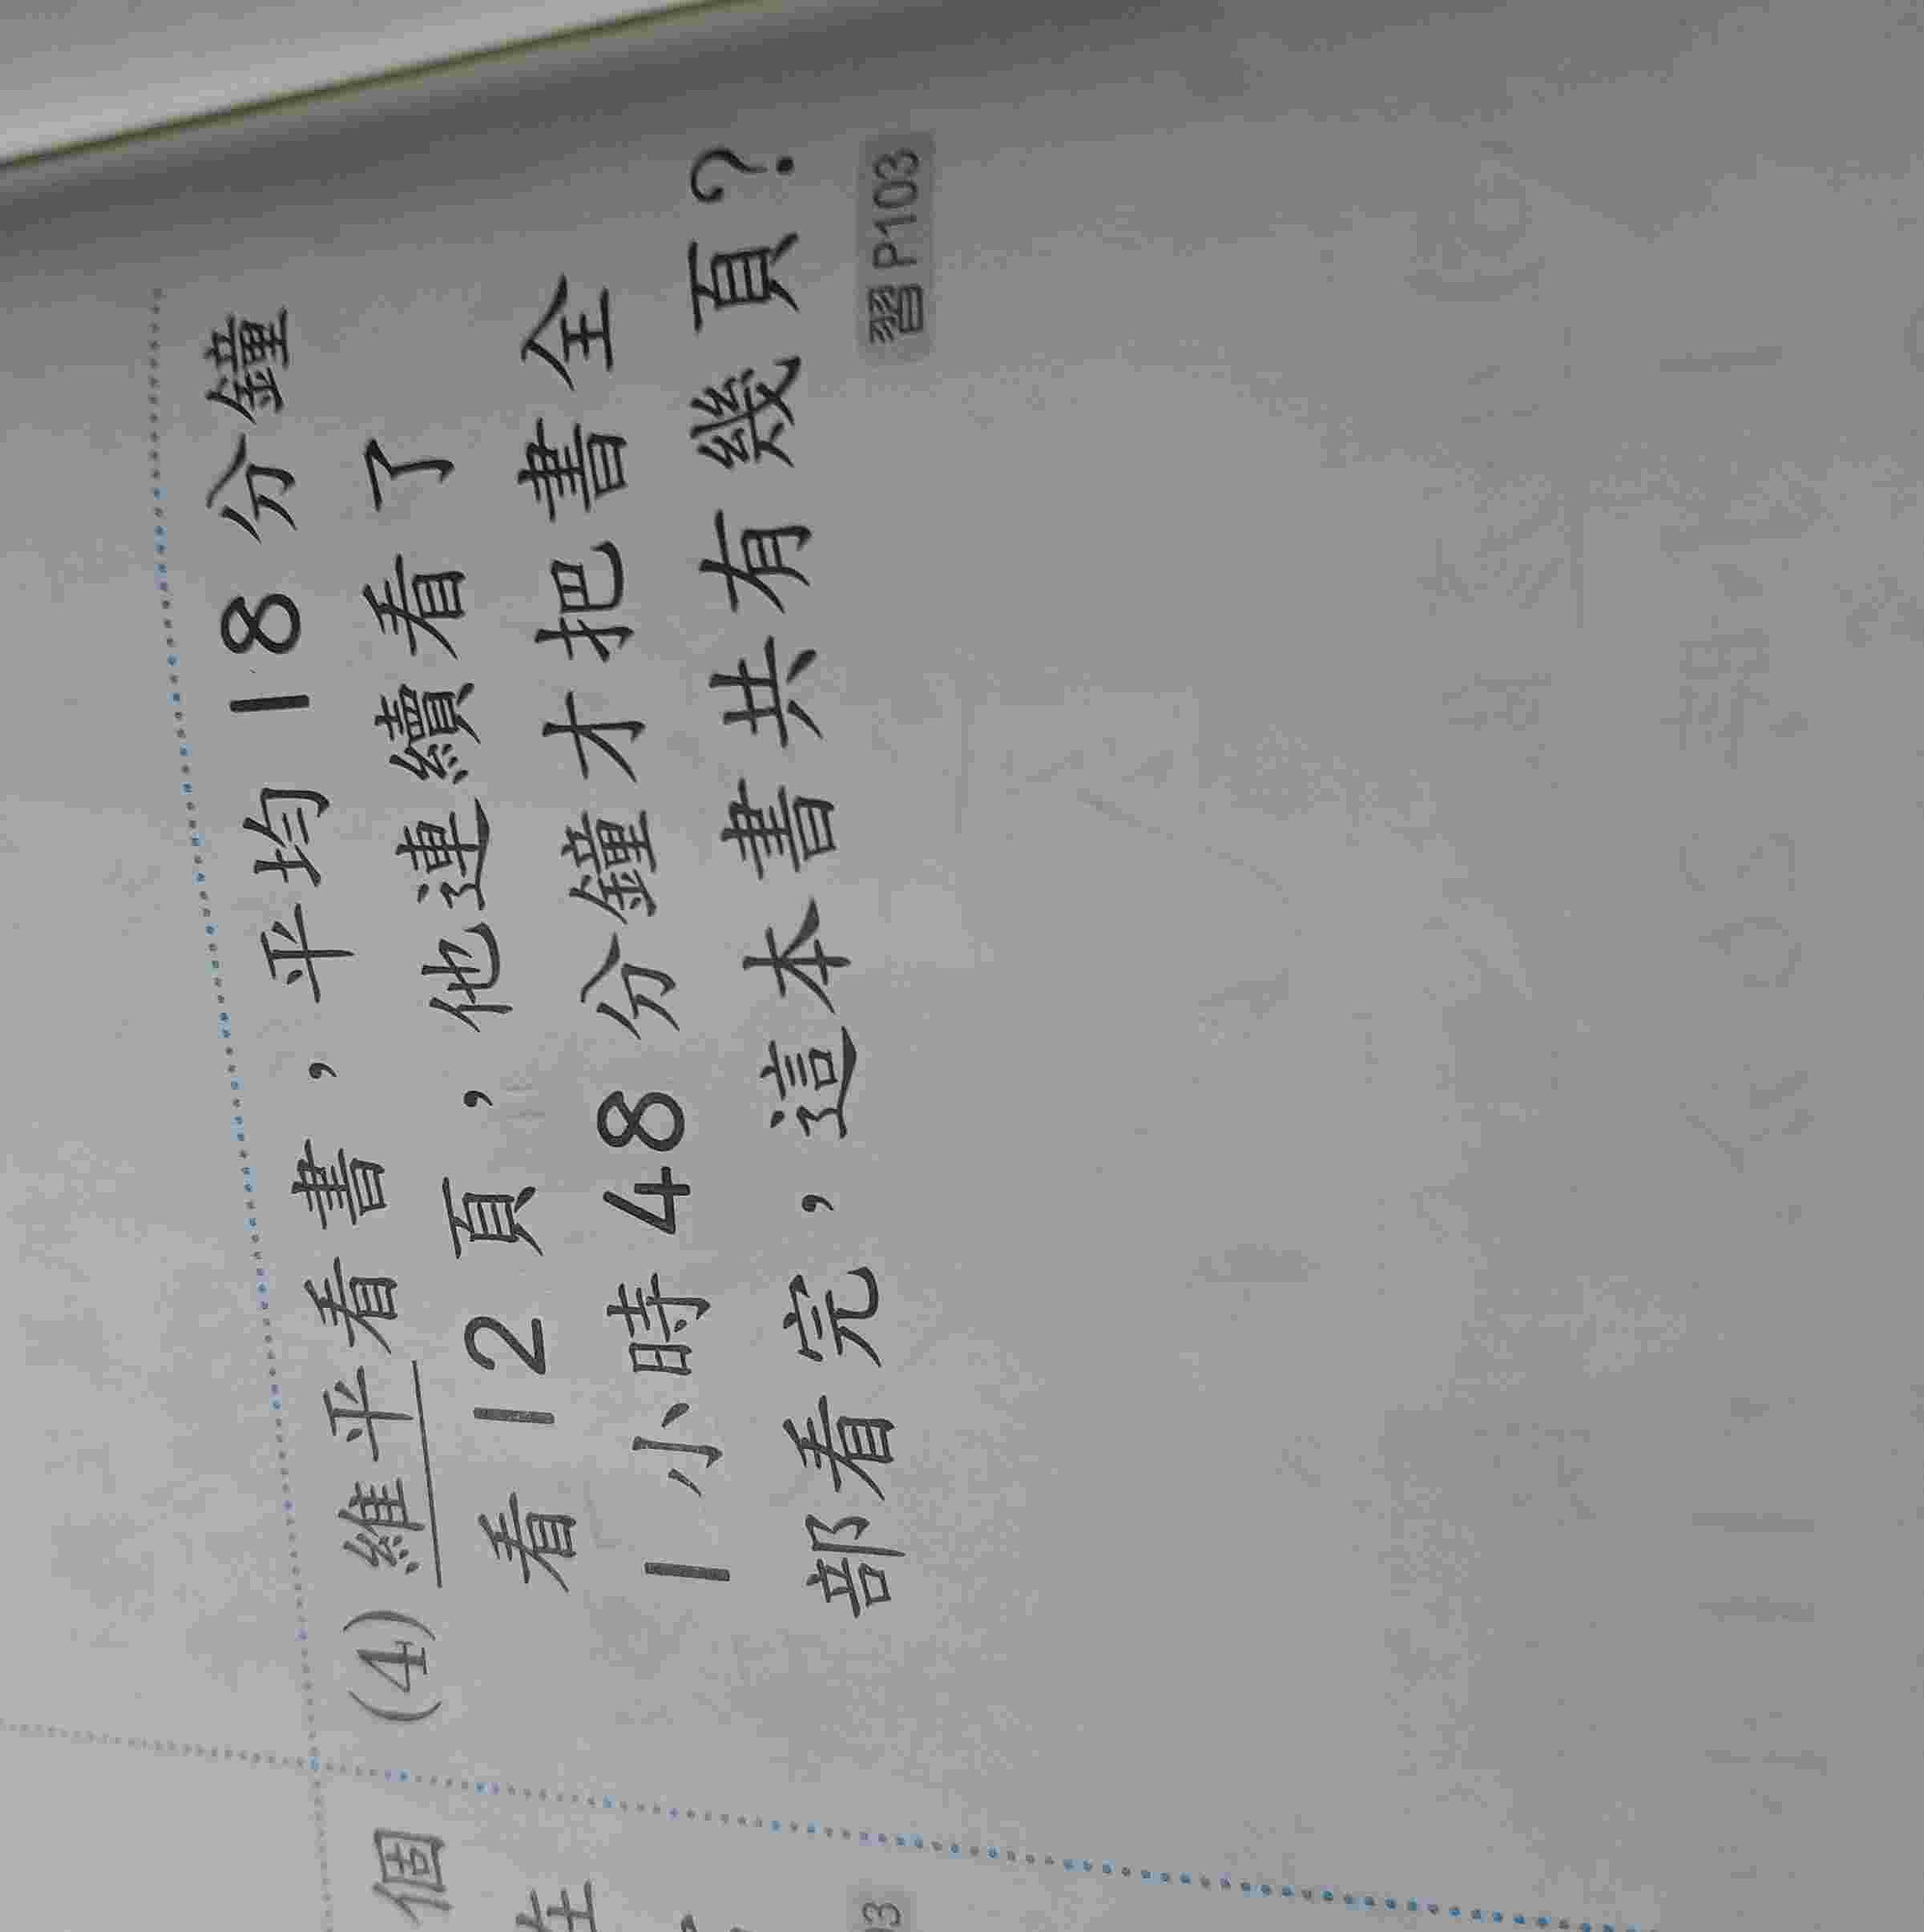 (4) 維平看書，平均 18 分鐘
看 12 頁，他連續看了
1 小時 48 分鐘才把書全
部看完，這本書共有幾頁？
習 P103
個
在